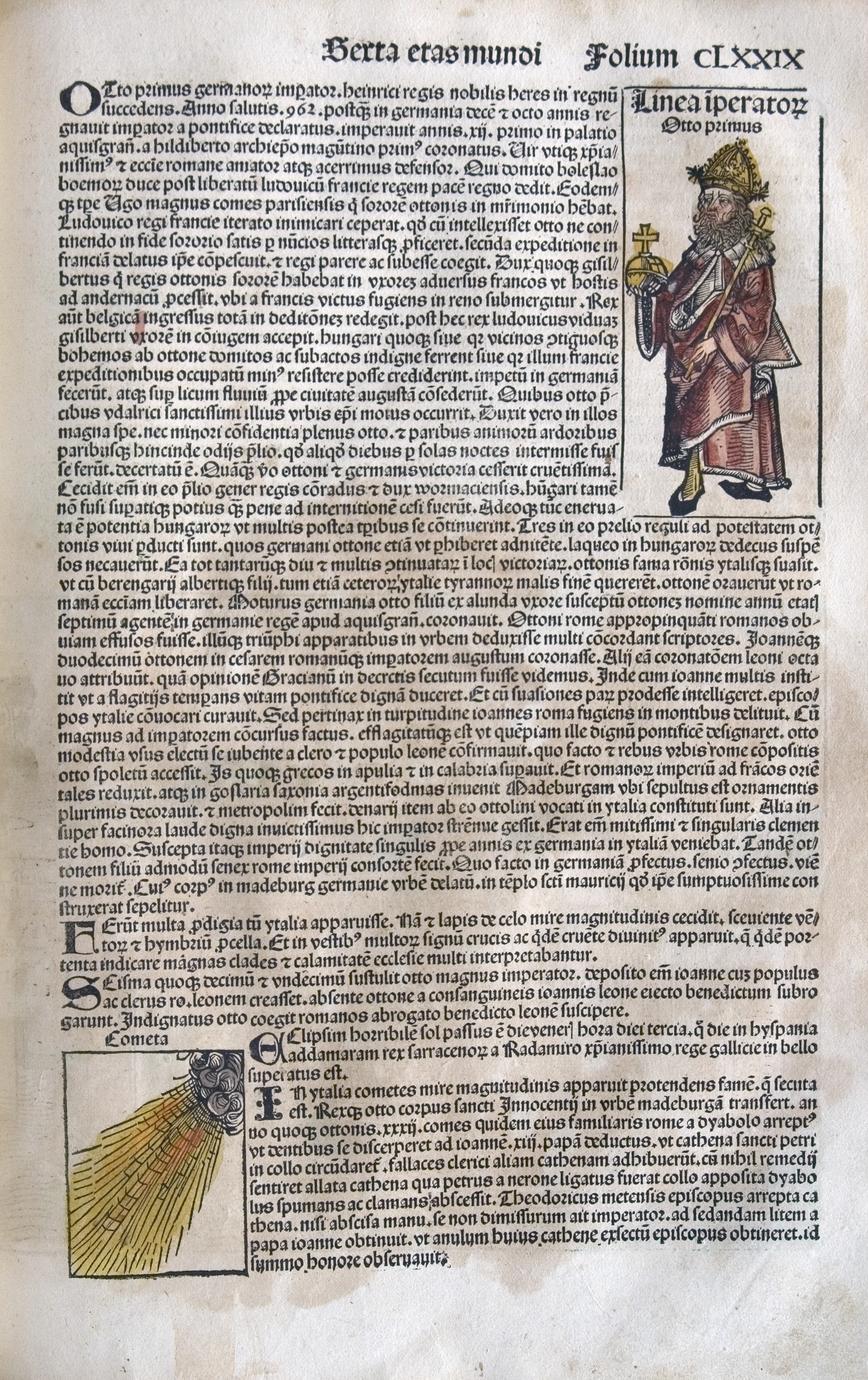 Sexta etas mundi Folium CLXXIX
Linea īperatoꝝ
Otto primus
OTto primus germanoꝝ imꝑator. heinrici regis nobilis heres in regnū
succedens. Anno salutis. 962. postqꝫ in germania decē ⁊ octo annis re-
gnauit imꝑator a pontifice declaratus. imperauit annis. xij. primo in palatio
aquisgrañ. a hildiberto archiep̄o magūtino primꝰ coronatus. Uir vtiqꝫ xp̄ia/
nissimꝰ ⁊ eccl̄ie romane amator atqꝫ acerrimus defensor. Qui domito boleslao
boemoꝝ duce post liberatū ludouicū francie regem pacē regno dedit. Eodem/
qꝫ tꝑe Ugo magnus comes parisiensis q̇ sororē ottonis in mr̄imonio hēbat.
Ludouico regi francie iterato inimicari ceperat. qḋ cū intellexisset otto ne con/
tinendo in fide sororio satis ꝑ nūcios litterasqꝫ ꝓficeret. secūda expeditione in
franciā delatus ip̄e cōpescuit. ⁊ regi parere ac subesse coegit. Dux quoqꝫ gisil/
bertus q̇ regis ottonis sororē habebat in vxoreꝫ aduersus francos vt hostis
ad andernacū ꝓcessit. vbi a francis victus fugiens in reno submergitur. Rex
aūt belgicā ingressus totā in deditōneꝫ redegit. post hec rex ludouicus viduaꝫ
gisilberti vxorē in cōiugem accepit. hungari quoqꝫ siue qꝛ vicinos ꝯtiguosqꝫ
bohemos ab ottone domitos ac subactos indigne ferrent siue qꝛ illum francie
expeditionibus occupatū minꝰ resistere posse crediderint. impetū in germaniā
fecerūt. atqꝫ suꝑ licum fluuiū ꝓpe ciuitatē augustā cōsederūt. Quibus otto p̄-
cibus vdalrici sanctissimi illius vrbis ep̄i motus occurrit. Duxit vero in illos
magna spe. nec minori cōfidentia plenus otto. ⁊ paribus animorū ardoribus
paribusqꝫ hincinde odijs p̄lio. qḋ aliqḋ diebus ꝑ solas noctes intermisse fuisse
se ferūt. decertatū ē. Quāqꝫ v̇o ottoni ⁊ germanis victoria cesserit cruētissima.
Cecidit em̄ in eo p̄lio gener regis cōradus ⁊ dux wormaciensis. hūgari tamē
nō fusi suꝑatiqꝫ potius qꝫ pene ad internitionē cesi fuerūt. Adeoqꝫ tūc enerua-
ta ē potentia hungaroꝝ vt multis postea tꝑibus se cōtinuerint. Tres in eo prelio reguli ad potestatem ot/
tonis viui ꝑducti sunt. quos germani ottone etiā vt ꝓhiberet adnitēte. laqueo in hungaroꝝ dedecus suspē
sos necauerūt. Ea tot tantarūqꝫ diu ⁊ multis ꝯtinuataꝝ ī locꝭ victoriaꝝ. ottonis fama rōnis ytalisqꝫ suasit.
vt cū berengarij albertiqꝫ filij. tum etiā ceteroꝝ ytalie tyrannoꝝ malis finē quererēt. ottonē orauerūt vt ro-
manā eccl̄iam liberaret. Moturus germania otto filiū ex alunda vxore susceptū ottoneꝫ nomine annū etatꝭ
septimū agentē in germanie regē apud aquisgrañ. coronauit. Ottoni rome appropinquāti romanos ob-
uiam effusos fuisse. illūqꝫ triūphi apparatibus in vrbem deduxisse multi cōcordant scriptores. Joannēqꝫ
duodecimū ottonem in cesarem romanūqꝫ imꝑatorem augustum coronasse. Alij eā coronatōem leoni octa
uo attribuūt. quā opinionē Gracianū in decretis secutum fuisse videmus. Inde cum ioanne multis insti-
tit vt a flagitijs temꝑans vitam pontifice dignā duceret. Et cū suasiones paꝝ prodesse intelligeret. episco/
pos ytalie cōuocari curauit. Sed pertinax in turpitudine ioannes roma fugiens in montibus delituit. Cū
magnus ad imꝑatorem cōcursus factus. efflagitatūqꝫ est vt quēpiam ille dignū pontificē designaret. otto
modestia vsus electū se iubente a clero ⁊ populo leonē cōfirmauit. quo facto ⁊ rebus vrbis rome cōpositis
otto spoletū accessit. Is quoqꝫ grecos in apulia ⁊ in calabria suꝑauit. Et romanoꝝ imperiū ad frācos oriē
tales reduxit. atqꝫ in goslaria saxonia argentifodinas inuenit Madeburgam vbi sepultus est ornamentis
plurimis decorauit. ⁊ metropolim fecit. denarij item ab eo ottolini vocati in ytalia constituti sunt. Alia in-
super facinora laude digna inuictissimus hic imꝑator strēnue gessit. Erat em̄ mitissimi ⁊ singularis clemen
tie homo. Suscepta itaqꝫ imperij dignitate singulis ꝓpe annis ex germania in ytaliā veniebat. Tandē ot/
tonem filiū admodū senex rome imperij consortē fecit. Quo facto in germaniā ꝓfectus. senio ꝯfectus. viē
ne morit̄. Cuiꝰ corpꝰ in madeburg germanie vrbē delatū. in tēplo sctī mauricij qḋ ip̄e sumptuosissime con
struxerat sepelitur.
FErūt multa ꝓdigia tū ytalia apparuisse. Nā ⁊ lapis de celo mire magnitudinis cecidit. sceuiente vē/
toꝝ ⁊ hymbriū ꝓcella. Et in vestibꝰ multoꝝ signū crucis ac q̇dē cruēte diuinitꝰ apparuit. q̄ q̇dē por-
tenta indicare magnas clades ⁊ calamitatē ecclesie multi interpretabantur.
SCisma quoqꝫ decimū ⁊ vndecimū sustulit otto magnus imperator. deposito em̄ ioanne cuꝫ populus
ac clerus ro. leonem creasset. absente ottone a consanguineis ioannis leone eiecto benedictum subro
garunt. Indignatus otto coegit romanos abrogato benedicto leonē suscipere.
Cometa
EClipsim horribilē sol passus ē die venerꝭ hora diei tercia. q̄ die in hyspania
addamaram rex sarracenoꝝ a Radamiro xp̄ianissimo rege gallicie in bello
superatus est.
IN ytalia cometes mire magnitudinis apparuit protendens famē. q̄ secuta
est. Rexqꝫ otto corpus sancti Innocentij in vrbē madeburgā transfert. an
no quoqꝫ ottonis. xxxij. comes quidem eius familiaris rome a dyabolo arreptꝰ
vt dentibus se discerperet ad ioannē. xiij. papā deductus. vt cathena sancti petri
in collo circūdaret̄. fallaces clerici aliam cathenam adhibuerūt. cū nihil remedij
sentiret allata cathena qua petrus a nerone ligatus fuerat collo apposita dyabo
lus spumans ac clamans abscessit. Theodoricus metensis episcopus arrepta ca
thena. nisi abscisa manu. se non dimissurum ait imperator. ad sedandam litem a
papa ioanne obtinuit. vt anulum huius cathene exsectū episcopus obtineret. id
summo honore obseruauit.